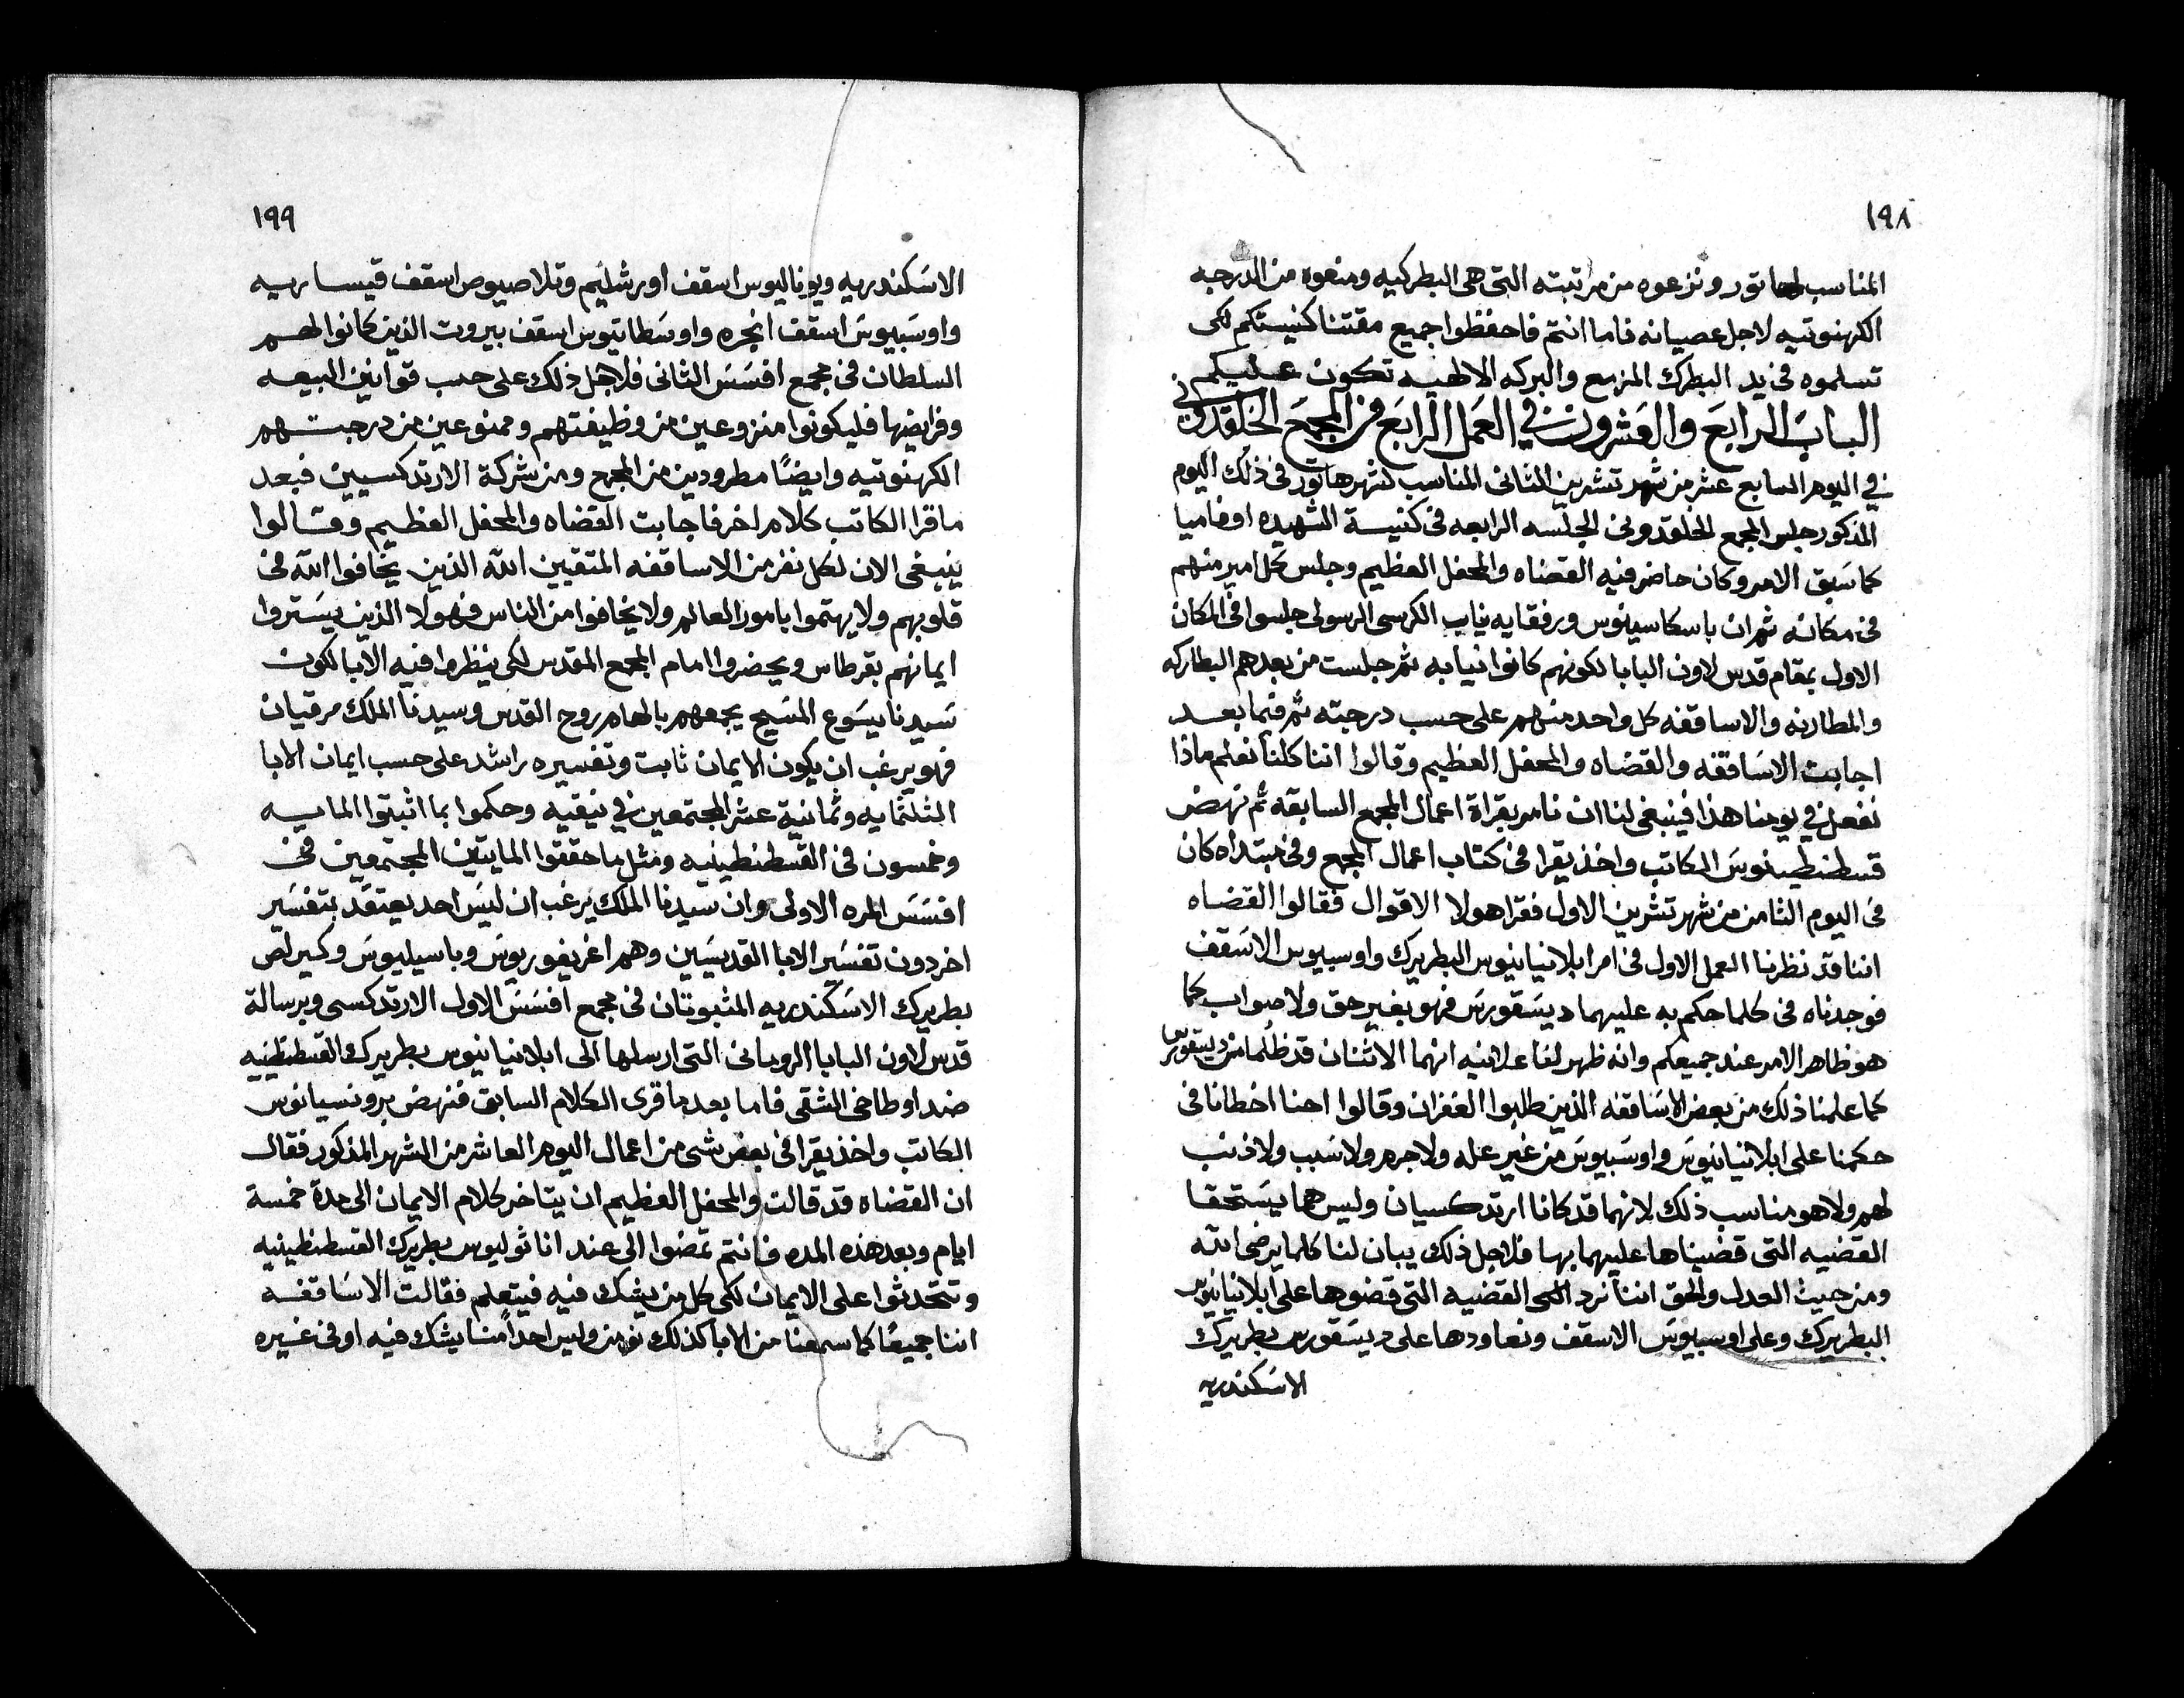 ١٩٨
المناسب لهاتور ونزعوه من مرتبته التى هى البطركيه ومنعوه من الدرجه
الكهنوتيه لاجل عصيانه فاما انتم فاحفظوا جميع مقتنا كنيستكم لكى
تسلموه فى يد البطرك المزمع والبركه الالهيه تكون عليكم
الباب الرابع والعشرون في العمل الرابع من المجمع الخلقدونى
في اليوم السابع عشر من شهر تشرين الثانى المناسب لشهر هاتور فى ذلك اليوم
المذكور جلس المجمع الخلقدونى الجلسه الرابعه فى كنيسة الشهيده اوفاميا
كما سبق الامر وكان حاضر فيه القضاه والمحفل العظيم وجلس كل امير منهم
فى مكانه ثم ان باسكاسينوس ورفقايه نياب الكرسى الرسولى جلسوا فى المكان
الاول بمقام قدس لاون البابا لكونهم كانوا نيابه ثم جلست من بعدهم البطاركه
والمطارنه والاساقفه كل واحد منهم على حسب درجته ثم فيما بعد
اجابت الاساقفه والقضاه والمحفل العظيم وقالوا اننا كلنا نعلم ماذا
نفعل في يومنا هذا فينبغى لنا ان نامر بقراة اعمال المجمع السابقه ثم نهض
قسطنطينوس الكاتب واخذ يقرا فى كتاب اعمال المجمع وفى مبتداه كان
فى اليوم الثامن من شهر تشرين الاول فقرا هولا الاقوال فقالوا القضاه
اننا قد نظرنا العمل الاول فى امر ابلانيانيوس البطريرك واوسبيوس الاسقف
فوجدناه فى كلما حكم به عليهما ديسقورس فهو بغير حق ولا صواب كما
هو ظاهر الامر عند جميعكم وانه ظهر لنا علانيه انهما الاثنان قد ظلما من ديسقورس
كما علمنا ذلك من بعض الاساقفه الذين طلبوا الغفران وقالوا احنا اخطانا فى
حكمنا على ابلانيانيوس واوسبيوس من غير عله ولا جرم ولا سبب ولا ذنب
لهم ولا هو مناسب ذلك لانهما قد كانا ارتدكسيان وليس هما يستحقا
القضيه التى قضيناها عليهما بها فلاجل ذلك يبان لنا كلما يرضى الله
ومن حيث العدل والحق اننا نرد الى القضيه التى قضوها على ابلانيانيوس
البطريرك وعلى اوسبيوس الاسقف ونعاودها على ديسقورس بطريرك
الاسكندريه
١٩٩
الاسكندريه ويوناليوس اسقف اورشليم وتلاصيوص اسقف قيساريه
واوسبيوس اسقف انجره واوسطاتيوس اسقف بيروت الذين كانوا لهم
السلطان فى مجمع افسس الثانى فلاجل ذلك على حسب قوانين البيعه
وفرايضها فليكونوا منزوعين من وظيفتهم وممنوعين من درجتهم
الكهنوتيه وايضًا مطرودين من المجمع ومن شركة الارتدكسيين فبعد
ما قرا الكاتب كلام اخر فاجابت القضاه والمحفل العظيم وقالوا
ينبغى الان لكل نفر من الاساقفه المتقيين الله الذين يخافوا الله فى
قلوبهم ولا يهتموا بامور العالم ولا يخافوا من الناس فهولا الذين يستروا
ايمانهم بقرطاس ويحضروا امام المجمع المقدس لكى ينظروا فيه الابا لكون
سيدنا يسوع المسيح يجمعهم بالهام روح القدس وسيدنا الملك مرقيان
فهو يرغب ان يكون الايمان ثابت وتفسيره راشد على حسب ايمان الابا
الثلثمايه وثمانية عشر المجتمعين في نيقيه وحكموا بما اثبتوا المايه
وخمسون فى القسطنطينيه ومثل ما حققوا المايتين المجتمعين فى
افسس المره الاولى وان سيدنا الملك يرغب ان ليس احد يعتقد بتفسير
اخر دون تفسير الابا القديسين وهم اغريغوريوس وباسيليوس وكيرلص
بطريرك الاسكندريه المثبوتان فى مجمع افسس الاول الارتدكسى وبرسالة
قدس لاون البابا الرومانى التى ارسلها الى ابلانيانيوس بطريرك القسطنطينيه
ضد اوطاخى الشقى فاما بعد ما قرى الكلام السابق فنهض برونسيانوس
الكاتب واخذ يقرا فى بعض شى من اعمال اليوم العاشر من الشهر المذكور فقال
ان القضاه قد قالت والمحفل العظيم ان يتاخر كلام الايمان الى مدة خمسة
ايام وبعد هذه المده فانتم تمضوا الى عند اناثوليوس بطريرك القسطنطينيه
وتتحدثوا على الايمان لكى كل من يشك فيه فيتعلم فقالت الاساقفه
اننا جميعًا كما سمعنا من الابا كذلك نومن وليس احدًا منا يشك فيه او فى غيره